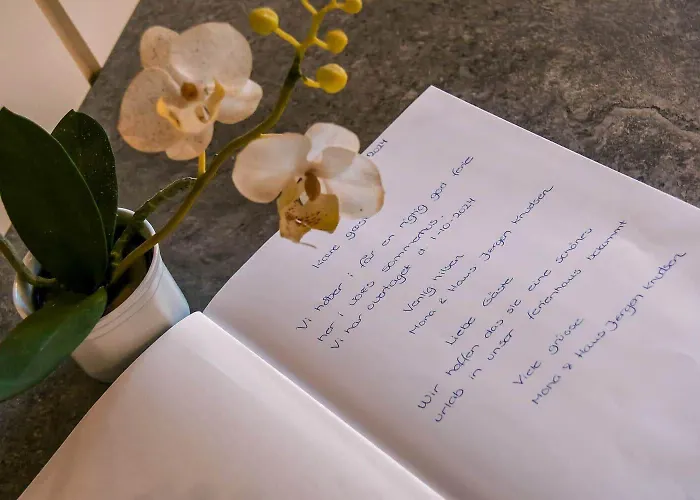 2024
Kære gæs
Vi håber i får en rigtig god ferie
her i vores sommerhus.
Vi har overtaget d 1-10-2024
Venlig hilsen
Mona & Hans Jørgen Knudsen
Liebe Gäste
Wir hoffen das sie eine schönes
urlab in unser ferienhaus bekommt
Viele grüsse
Mona & Hans Jørgen Knudsen